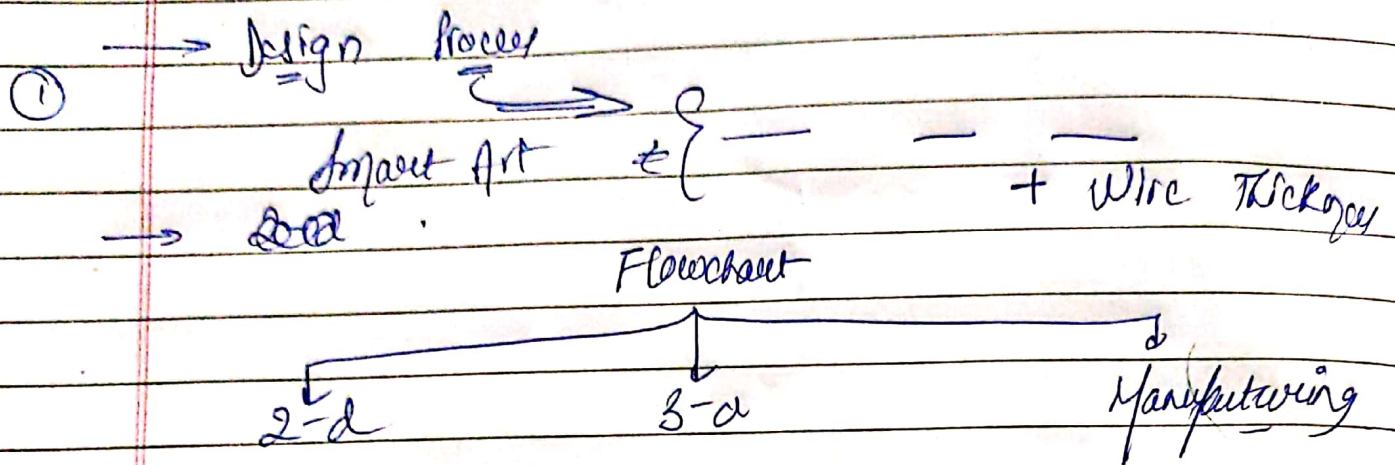 → Design Process
①
Smart Art t { — — —
+ Wire Thickness
→
Flowchart
2-d 3-d Manufacturing